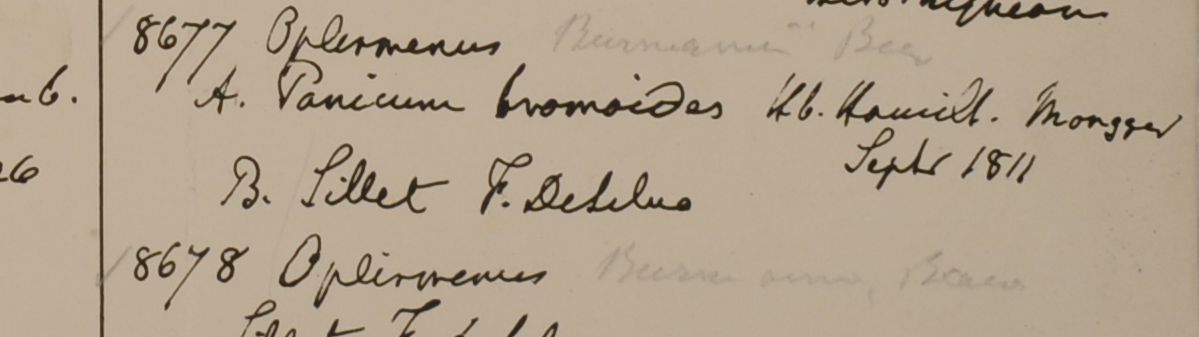 8677 Oplismenus Burmanni Beau
nb. A. Panicum bromoides Hb. Hamilt. Mongger
Septr 1811
26 B. Sillet F. DeSilva
8678 Oplismenus Burmanni, Beauv
Sillet F.